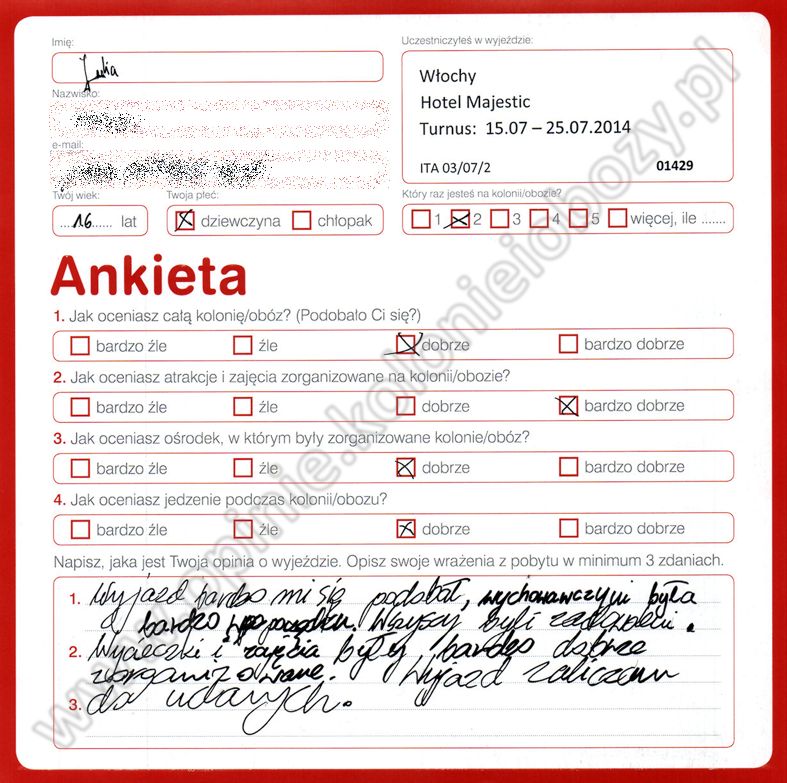 Imię:
Julia
Nazwisko:
e-mail:
Twój wiek:
16 lat
Twoja płeć:
dziewczyna chłopak
Uczestniczyłeś w wyjeździe:
Włochy
Hotel Majestic
Turnus: 15.07 – 25.07.2014
ITA 03/07/2 01429
Który raz jesteś na kolonii/obozie?
1 2 3 4 5 więcej, ile .......
Ankieta
1. Jak oceniasz całą kolonię/obóz? (Podobało Ci się?)
bardzo źle źle dobrze bardzo dobrze
2. Jak oceniasz atrakcje i zajęcia zorganizowane na kolonii/obozie?
bardzo źle źle dobrze bardzo dobrze
3. Jak oceniasz ośrodek, w którym były zorganizowane kolonie/obóz?
bardzo źle źle dobrze bardzo dobrze
4. Jak oceniasz jedzenie podczas kolonii/obozu?
bardzo źle źle dobrze bardzo dobrze
Napisz, jaka jest Twoja opinia o wyjeździe. Opisz swoje wrażenia z pobytu w minimum 3 zdaniach.
1. Wyjazd bardzo mi się podobał, wychowawczyni była
bardzo w porządku. Wszyscy byli zadowoleni.
2. Wycieczki i zajęcia były bardzo dobrze
zorganizowane. Wyjazd zaliczam
3. do udanych.
www.opinie.kolonieiobozy.pl